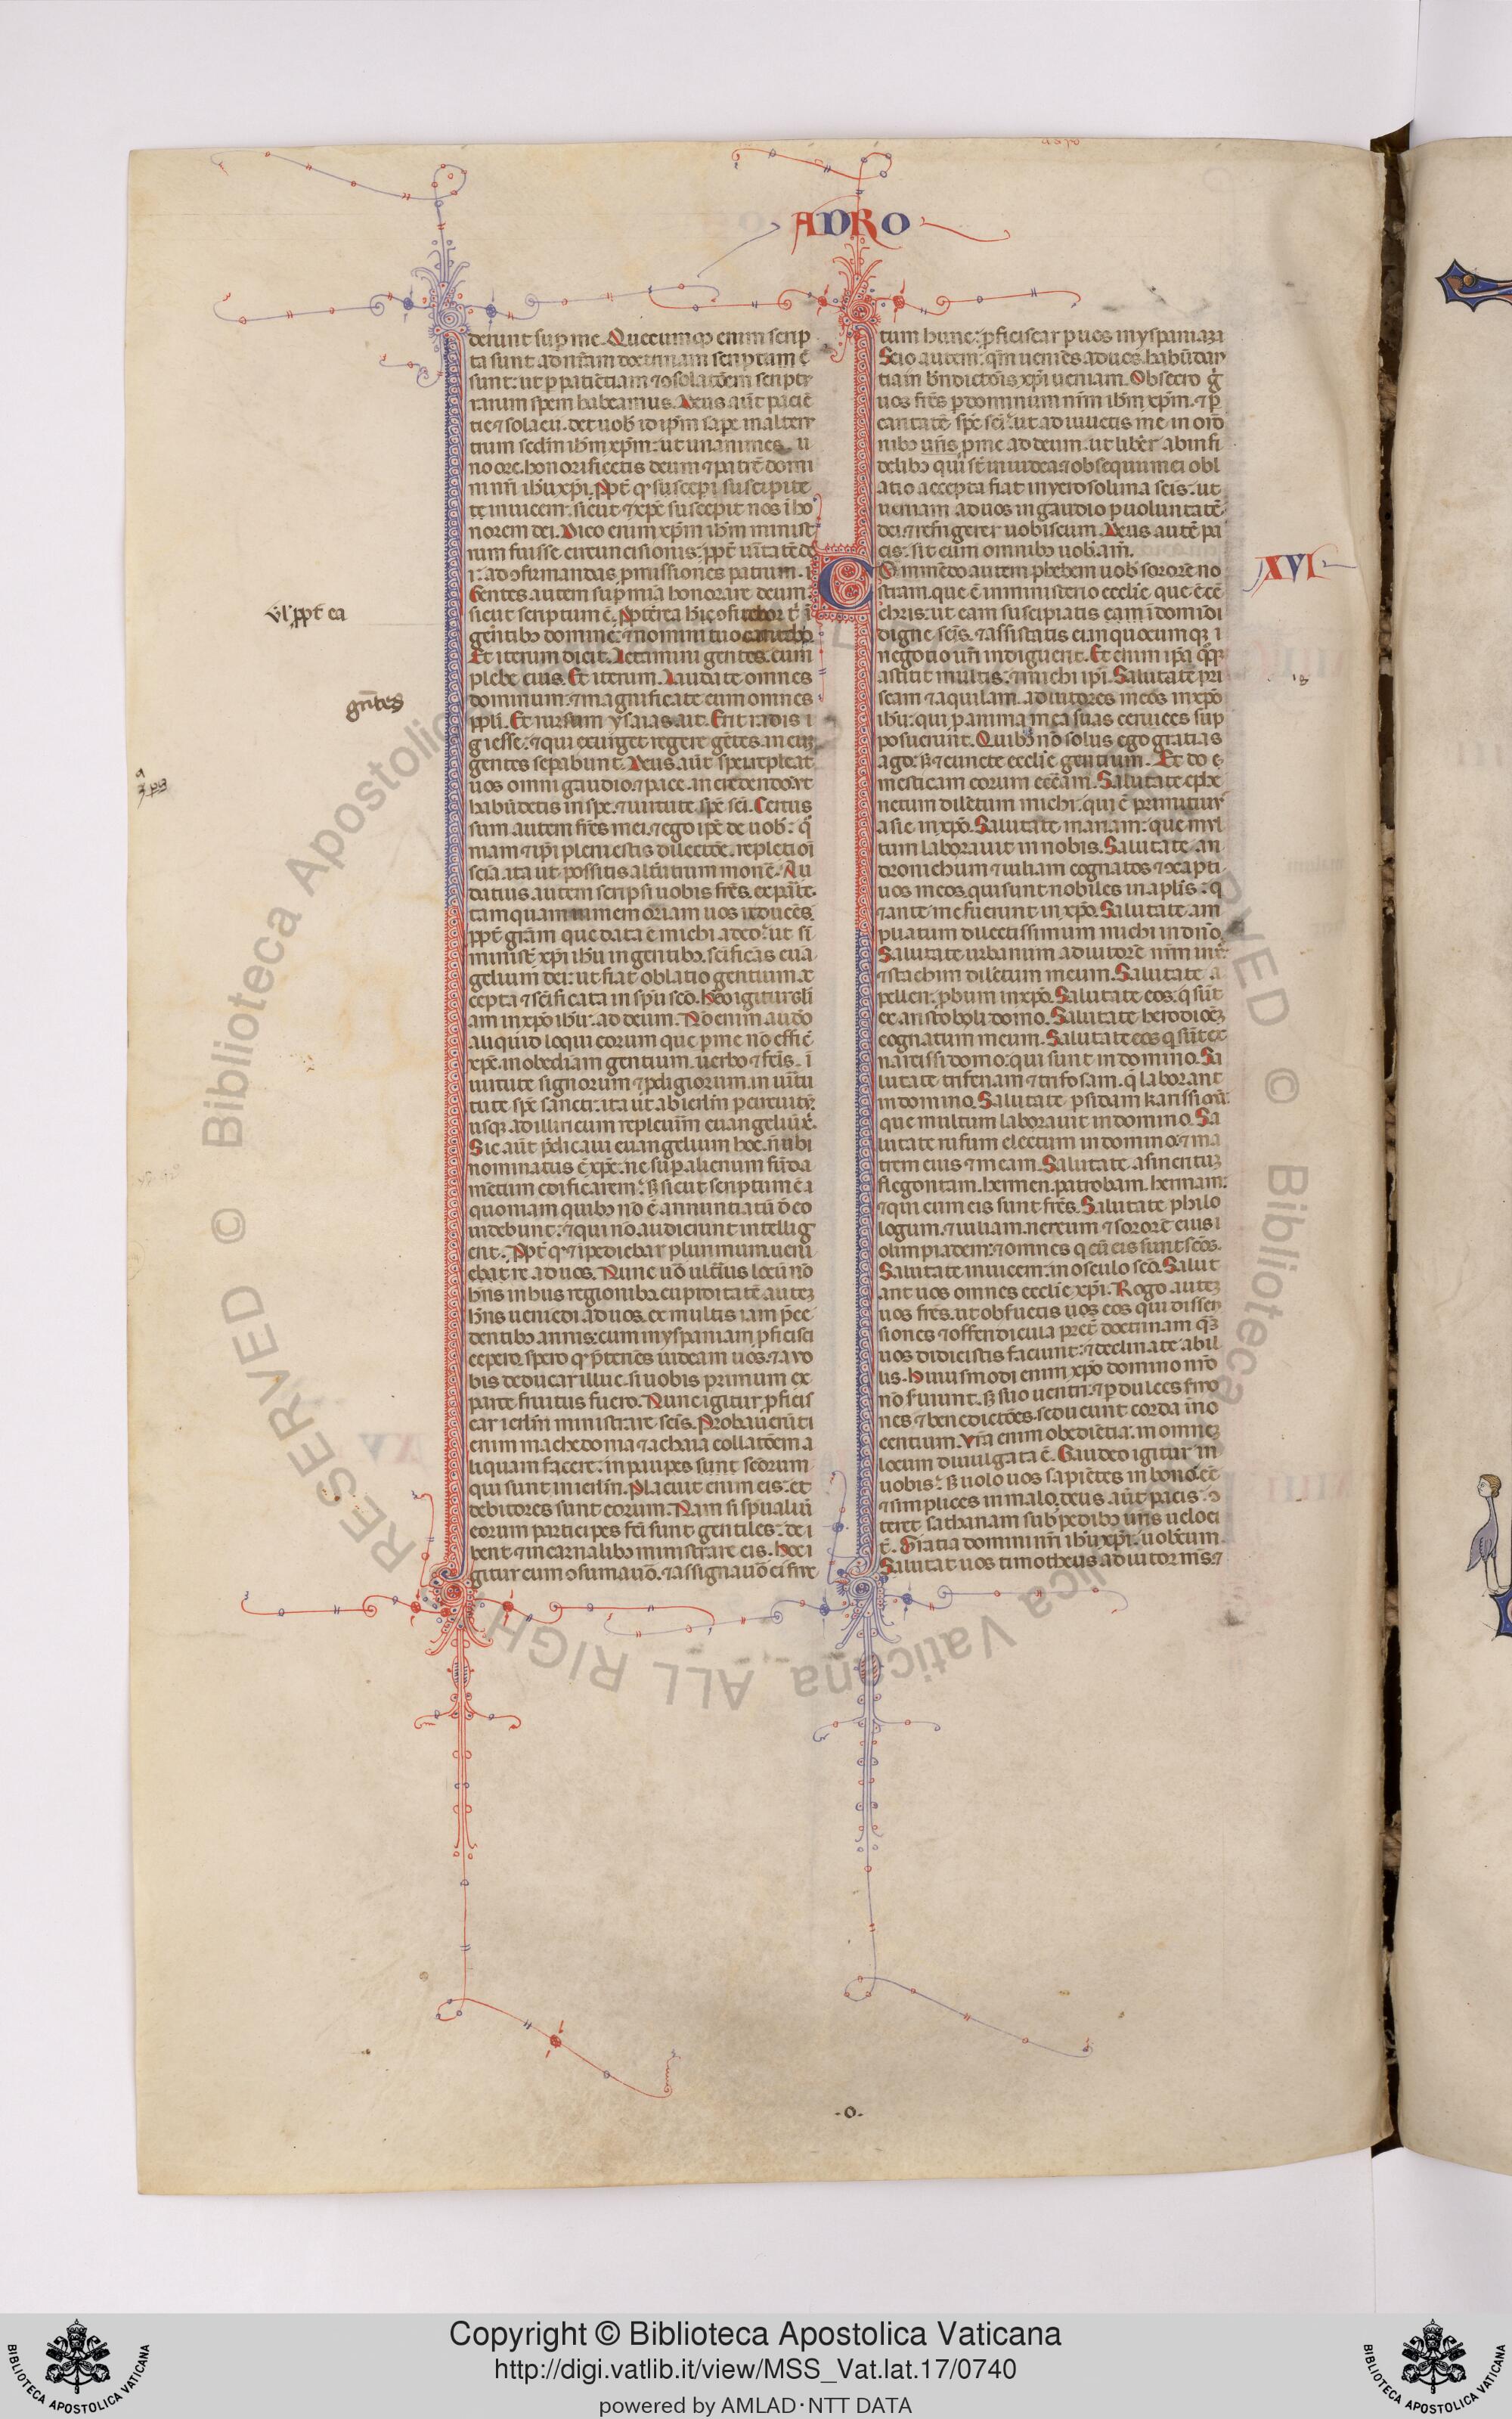 ADRO
derunt sup me. Quecumq; enim scrip
ta sunt ad nr̄am doctrinam scriptum ē
sunt: ut p patiētiam ⁊ ↄsolatōem scriptu
rarum spem habeamus. Deus aūt paciē
tie ⁊ solacii. det uob̄ id ip̄m sape in alteru
trum scd̄m ih̄m xp̄m: ut unanimes. u
no ore. honorificetis deum ⁊ patrē domi
ni nr̄i ih̄u xp̄i. Ppt̄ q̄ suscepi suscipite
te inuicem: sicut ⁊ xp̄c suscepit nos ī ho
norem dei. Dico enim xp̄m ih̄m minist
rum fuisse circuncisionis: ppt̄ ūitatē de
i: ad ↄfirmandas pmissiones patrum. i
Gentes autem sup mīa honorare deum.
sicut scriptum ē. Ppterea hic ↄfitebor t̄ ī
gentib; domine: ⁊ nomini tuo cantabo
Et iterum dicit. Letamini gentes. cum
plebe eius. Et iterum. Laudate omnes
dominum: ⁊ magnificate eum omnes
ppli. Et rursum ysaias ait. Erit radis i
giesse: ⁊ qui exurget regere gētes. in eum
gentes sperabunt. Deus aūt spei repleat
uos omni gaudio. ⁊ pace. in credendo: ut
habūdetis in spe. ⁊ uirtute sp̄c sc̄i. Certus
sum autem fr̄es mei. ⁊ ego ip̄e de uob̄: q̄
niam ⁊ ip̄i pleni estis dilectōe. repleti oī
scīa. ita ut possitis altūtrum monē. Au
datius. autem scripsi uobis fr̄es. ex pāte.
tamquam in memoriam uos reducēs.
ppt̄ gr̄am que data ē michi a deo: ut sī
minist̄ xp̄i ih̄u in gentib;. sc̄ificās eua
gelium dei: ut fiat oblatio gentium ac
cepta ⁊ sc̄ificata in sp̄u sc̄o. Heo igitur gl̄i
am in xp̄o ih̄u: ad deum. Nō enim audō
aliquid loqui eorum que p me nō effic̄
xp̄c. in obediam gentium. uerbo ⁊ fc̄is. ī
uirtute signorum ⁊ pdigiorum. in uir̄tu
tute sp̄c sancti: ita ut ab ierl̄m p circuitū
usq; ad illiricum repleuīm euangeliū x̄.
Sic aūt pdicaui euangelium hoc. n̄ ubi
nominatus ē xp̄c. ne sup alienum fūda
mētum edificarem: s; sicut scriptum ē ı
quoniam quib; nō ē annuntiatū d̄ eo
uidebunt: ⁊ qui nō audierunt intellig
ent. Ppt̄ q̄ ⁊ ipediebar plurimum. ueni
ebat re. ad uos. Nunc uō ultīus locū nō
hn̄s in hus regionib; cupiditatē autez
hn̄s ueniēdi ad uos. ex multis iam p̄ce
dentib; annis: cum in yspaniam pficisci
cepero. spero q̄ p̄teriēs uideam uos. ⁊ a vo
bis deducar illuc. si uobis primum ex
parte fruitus fuero. Nunc igitur pficis
car ierl̄m ministrare sc̄is. Probauerūt i
enim machedonia ⁊ achaia collatōem a
liquam facere: in paupes sunt sc̄orum
qui sunt in ierl̄m. Placuit enim eis: et
debitores sunt eorum. Nam si sp̄ualiū
eorum participes fc̄i sunt gentiles: de i
bent ⁊ in carnalib; ministrare eis. Hoc i
gitur cum ↄsumauō. ⁊ assignauō ei fruc
tum hunc: pficiscar p uos in yspaniaʒ ı
Scio autem: qm̄ ueniēs ad uos. habūdan
tiam bn̄dictōis xp̄i ueniam. Obsecro ḡ
uos fr̄es p dominum nr̄m ih̄m xp̄m. ⁊ p̄
caritatē sp̄c sc̄i: ut adiuuetis me in orō
nib; ur̄is p me ad deum. ut libēr ab infi
delib; qui st̄ in iudea: ⁊ obsequii mei obl
atio accepta fiat in yerosolima sc̄is: ut
ueniam ad uos in gaudio p uoluntatē
dei: ⁊ refrigerer uobiscum. Deus autē pa
cis: sit cum omnib; uob̄. am̄.
XVI
COmmēdo autem phebem uob̄ sororē no
stram. que ē in ministerio ecclīe que ē cē
chris: ut eam suscipiatis eam ī domīo i
digne sc̄is. ⁊ assistatis ei in quocumq; ī
negotio ur̄i indiguerit. Et enim ip̄a q̄q;
astitit multis: ⁊ michi ip̄i. Salutatē pri
scam ⁊ aquilam. adiutores meos in xp̄o
ih̄u: qui p anima mea suas ceruices sup
posuerunt. Quib; nō solus ego gratias
ago: s; ⁊ cuncte ecclīe gentium. Et do e
mesticam eorum ecc̄am. Salutate ephe
netum dilc̄tum michi: qui ē primitiu̅s
asie in xp̄o. Salutate mariam: que mul
tum laborauit in nobis. Salutate an
dronichum ⁊ iuliam cognatos ⁊ ꝯcapti
uos meos. qui sunt nobiles in aplis: q̄
⁊ ante me fuerunt in xp̄o. Salutate am
pliatum dilectissimum michi in dn̄o.
Salutate urbanum adiutorē nr̄m in x̄
⁊ stachim dilc̄tum meum. Salutate a
pellen: pbum in xp̄o. Salutate eos: q̄ sūt
ex aristoboli domo. Salutate herodioēʒ
cognatum meum. Salutate eos q̄ sūt ex
narcissi domo: qui sunt in domino. Sa
lutate trifenam ⁊ trifosam. q̄ laborant
in domino. Salutate psidam karissimā:
que multum laborauit in domino. Sa
lutate rufum electum in domino: ⁊ ma
trem eius ⁊ meam. Salutate asincrituʒ
flegontam. hermen. patrobam. hermam:
⁊ qui cum eis sunt fr̄es. Salutate philo
logum. ⁊ iuliam. nereum ⁊ sororē eius ı
olimpiadem: ⁊ omnes q̄ cū eis sunt sc̄os.
Salutate inuicem: in osculo sc̄o. Salut
ant uos omnes ecclīe xp̄i. Rogo auteʒ
uos fr̄es. ut obsuetis uos eos qui dissen
siones ⁊ offendicula pret̄ doctrinam q̄ʒ
uos didicistis faciunt: ⁊ declinate ab il
lis. Huiusmodi enim xp̄o domino nr̄o
nō suiunt. s; suo uentri: ⁊ p dulces smo
nes ⁊ benedictōes. seducunt corda ino
centium. Vr̄a enim obediētia: in omneʒ
locum diuulgata ē. Gaudeo igitur in
uobis: s; uolo uos sapiētes in bono. ee
⁊ simplices in malo. deus aūt pacis: ↄ
teret sathanam sub pedib; ur̄is ueloci
t̄. Gratia domini nr̄i ih̄u xp̄i: uobcum.
Salutat uos timotheus adiutor m̄s: ⁊
ul' ppt̄ ea
gn̄tes
-o-
Copyright © Biblioteca Apostolica Vaticana
http://digi.vatlib.it/view/MSS_Vat.lat.17/0740
powered by AMLAD·NTT DATA
BIBLIOTECA APOSTOLICA VATICANA
BIBLIOTECA APOSTOLICA VATICANA
© Biblioteca Apostolica Vaticana ALL RIGHTS RESERVED